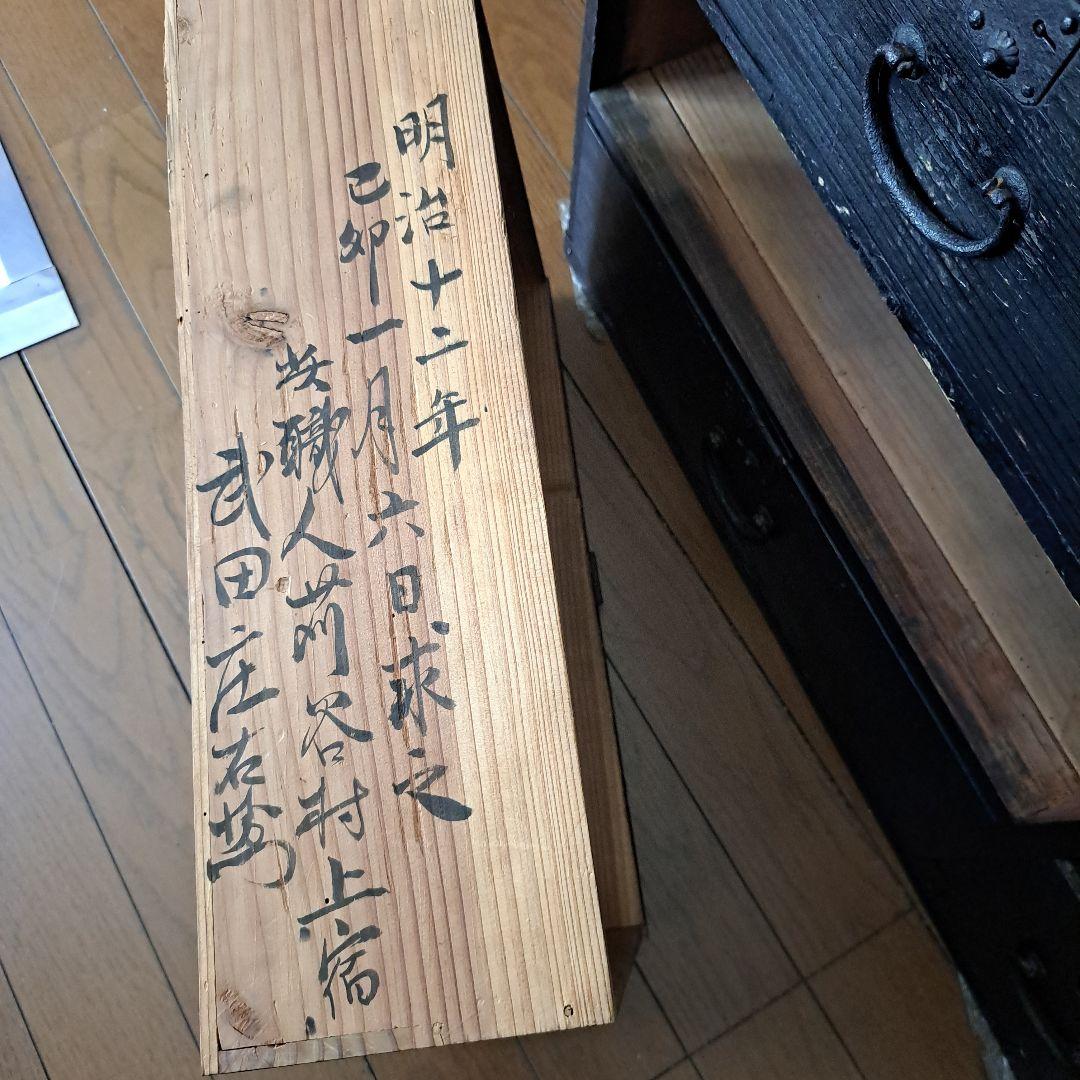 明治十二年
己卯一月六日求之
職人苅谷村上宿
武田庄右